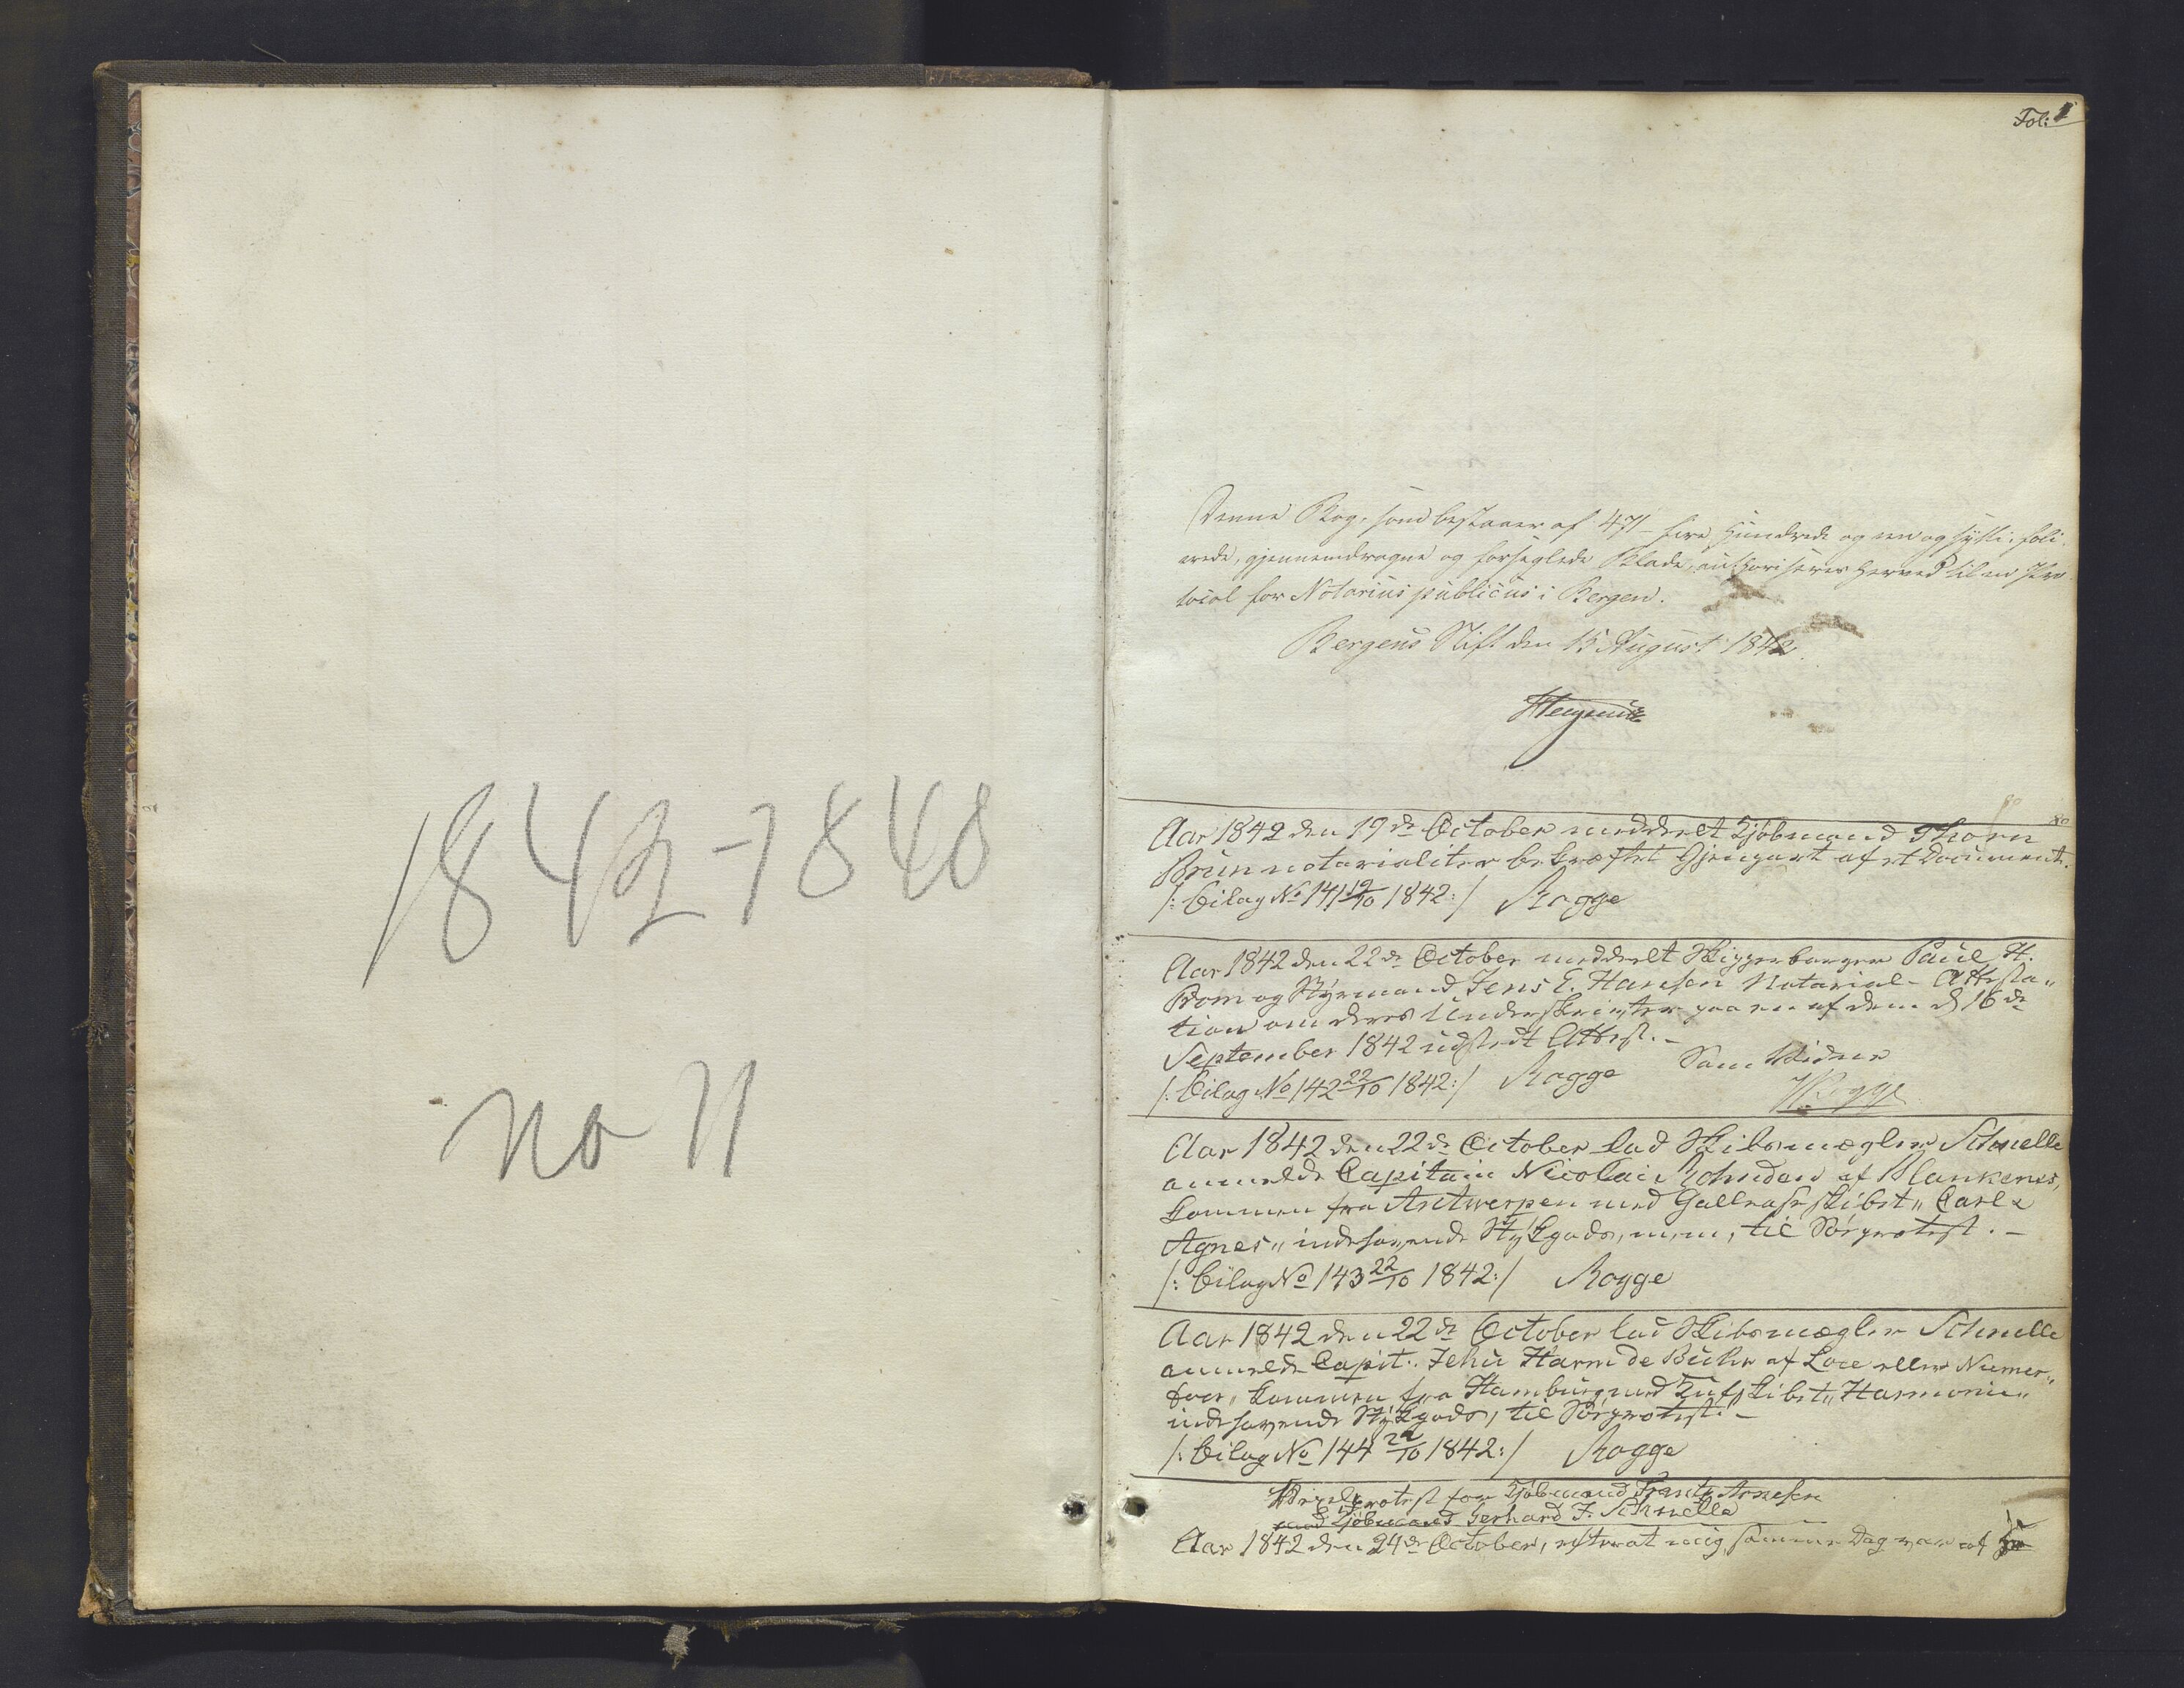 1842-1848
no 11
Fol: 1
Denne Bog, som bestaaer af 471 - fire Hundrede og een og sytti - foli-
erede, gjennemdragne og forseglede Blade, authoriseres herved til en Pro-
tocol for Notarius publicus i Bergen.
Bergens Stift den 15 August 1842.
Aar 1842 den 19de October meddeelt Kjöbmand Thorn
Brun notarialiter bekræftet Gjenpart af et Document.
/: Bilag No 141 19/10 1842 :/ Rogge
Aar 1842 den 22de October meddeelt Skipperborger Paul H.
Brom og Styrmand Jens E. Hansen Notarial-Attesta„
tion om deres Underskrifter paa en af dem d 16de
September 1842 udstedt Attest. -
/: Bilag No 142 22/10 1842 :/ Rogge Som Vidne
Aar 1842 den 22de October lod Skibsmægler Schnelle
anmelde Capitain Nicolai Rohnden af Blankenes,
kommen fra Antwerpen med Galleas Skibet „Carl &
Agnes„ indehavende Stykgods, m.m, til Söeprotest. -
/: Bilag No 143 22/10 1842 :/ Rogge
Aar 1842 den 22de October lod Skibsmægler Schnelle
anmelde Capit: Jehu Harm de Buhr af Loce eller Numer„
foer, kommen fra Hamburg med Kufskibet „Harmonie„
indehavende Stykgods, til Söeprotest. -
/: Bilag No 144 22/10 1842 :/ Rogge
Vexelprotest for Kjöbmand Frantz Arnesen
mod Kjöbmand Gerhard F. Schnelle
Aar 1842 den 24de October, efterat mig samme Dag var af